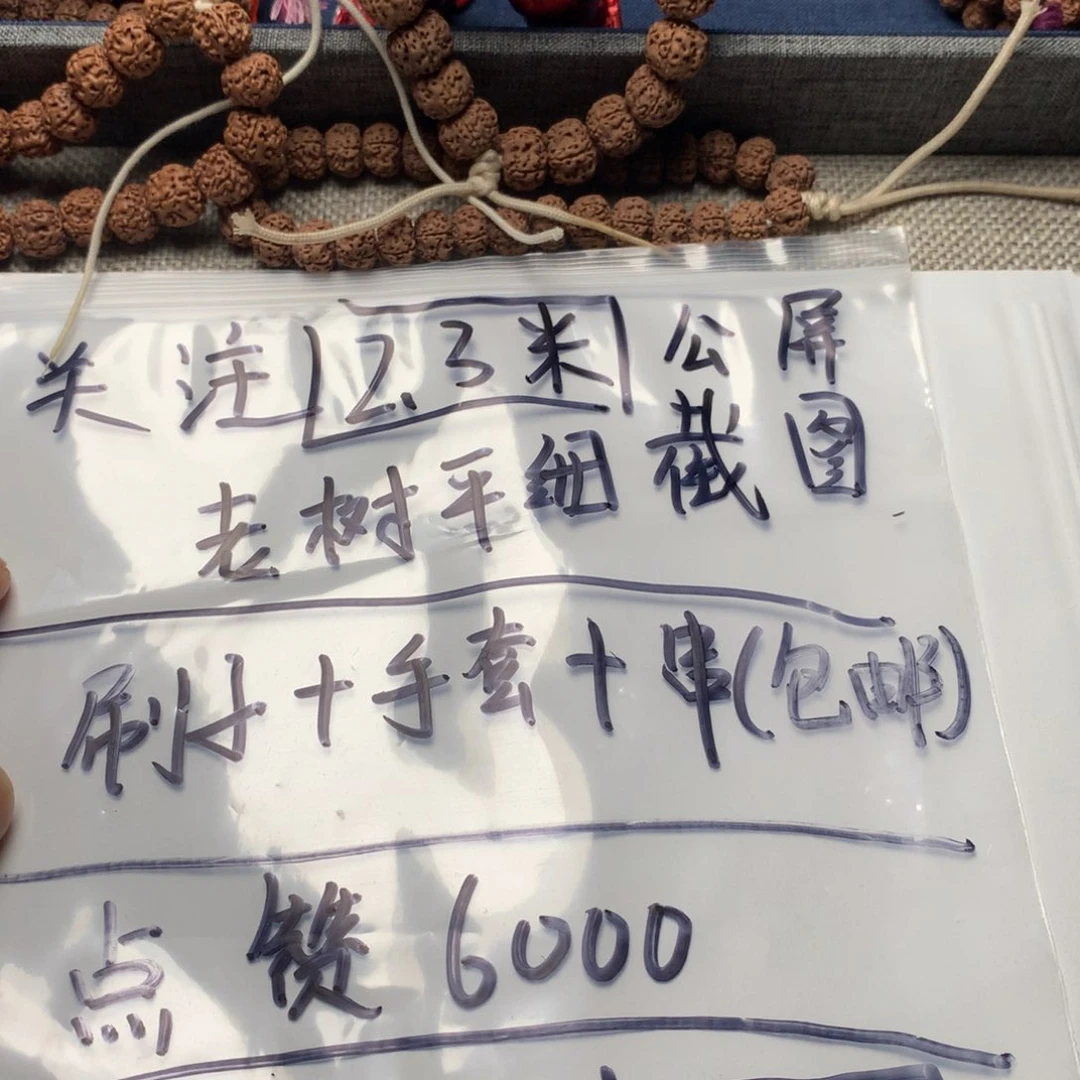 关注 2.3米 公屏
老树平细 截图
刷+手套+串(包邮)
点赞6000